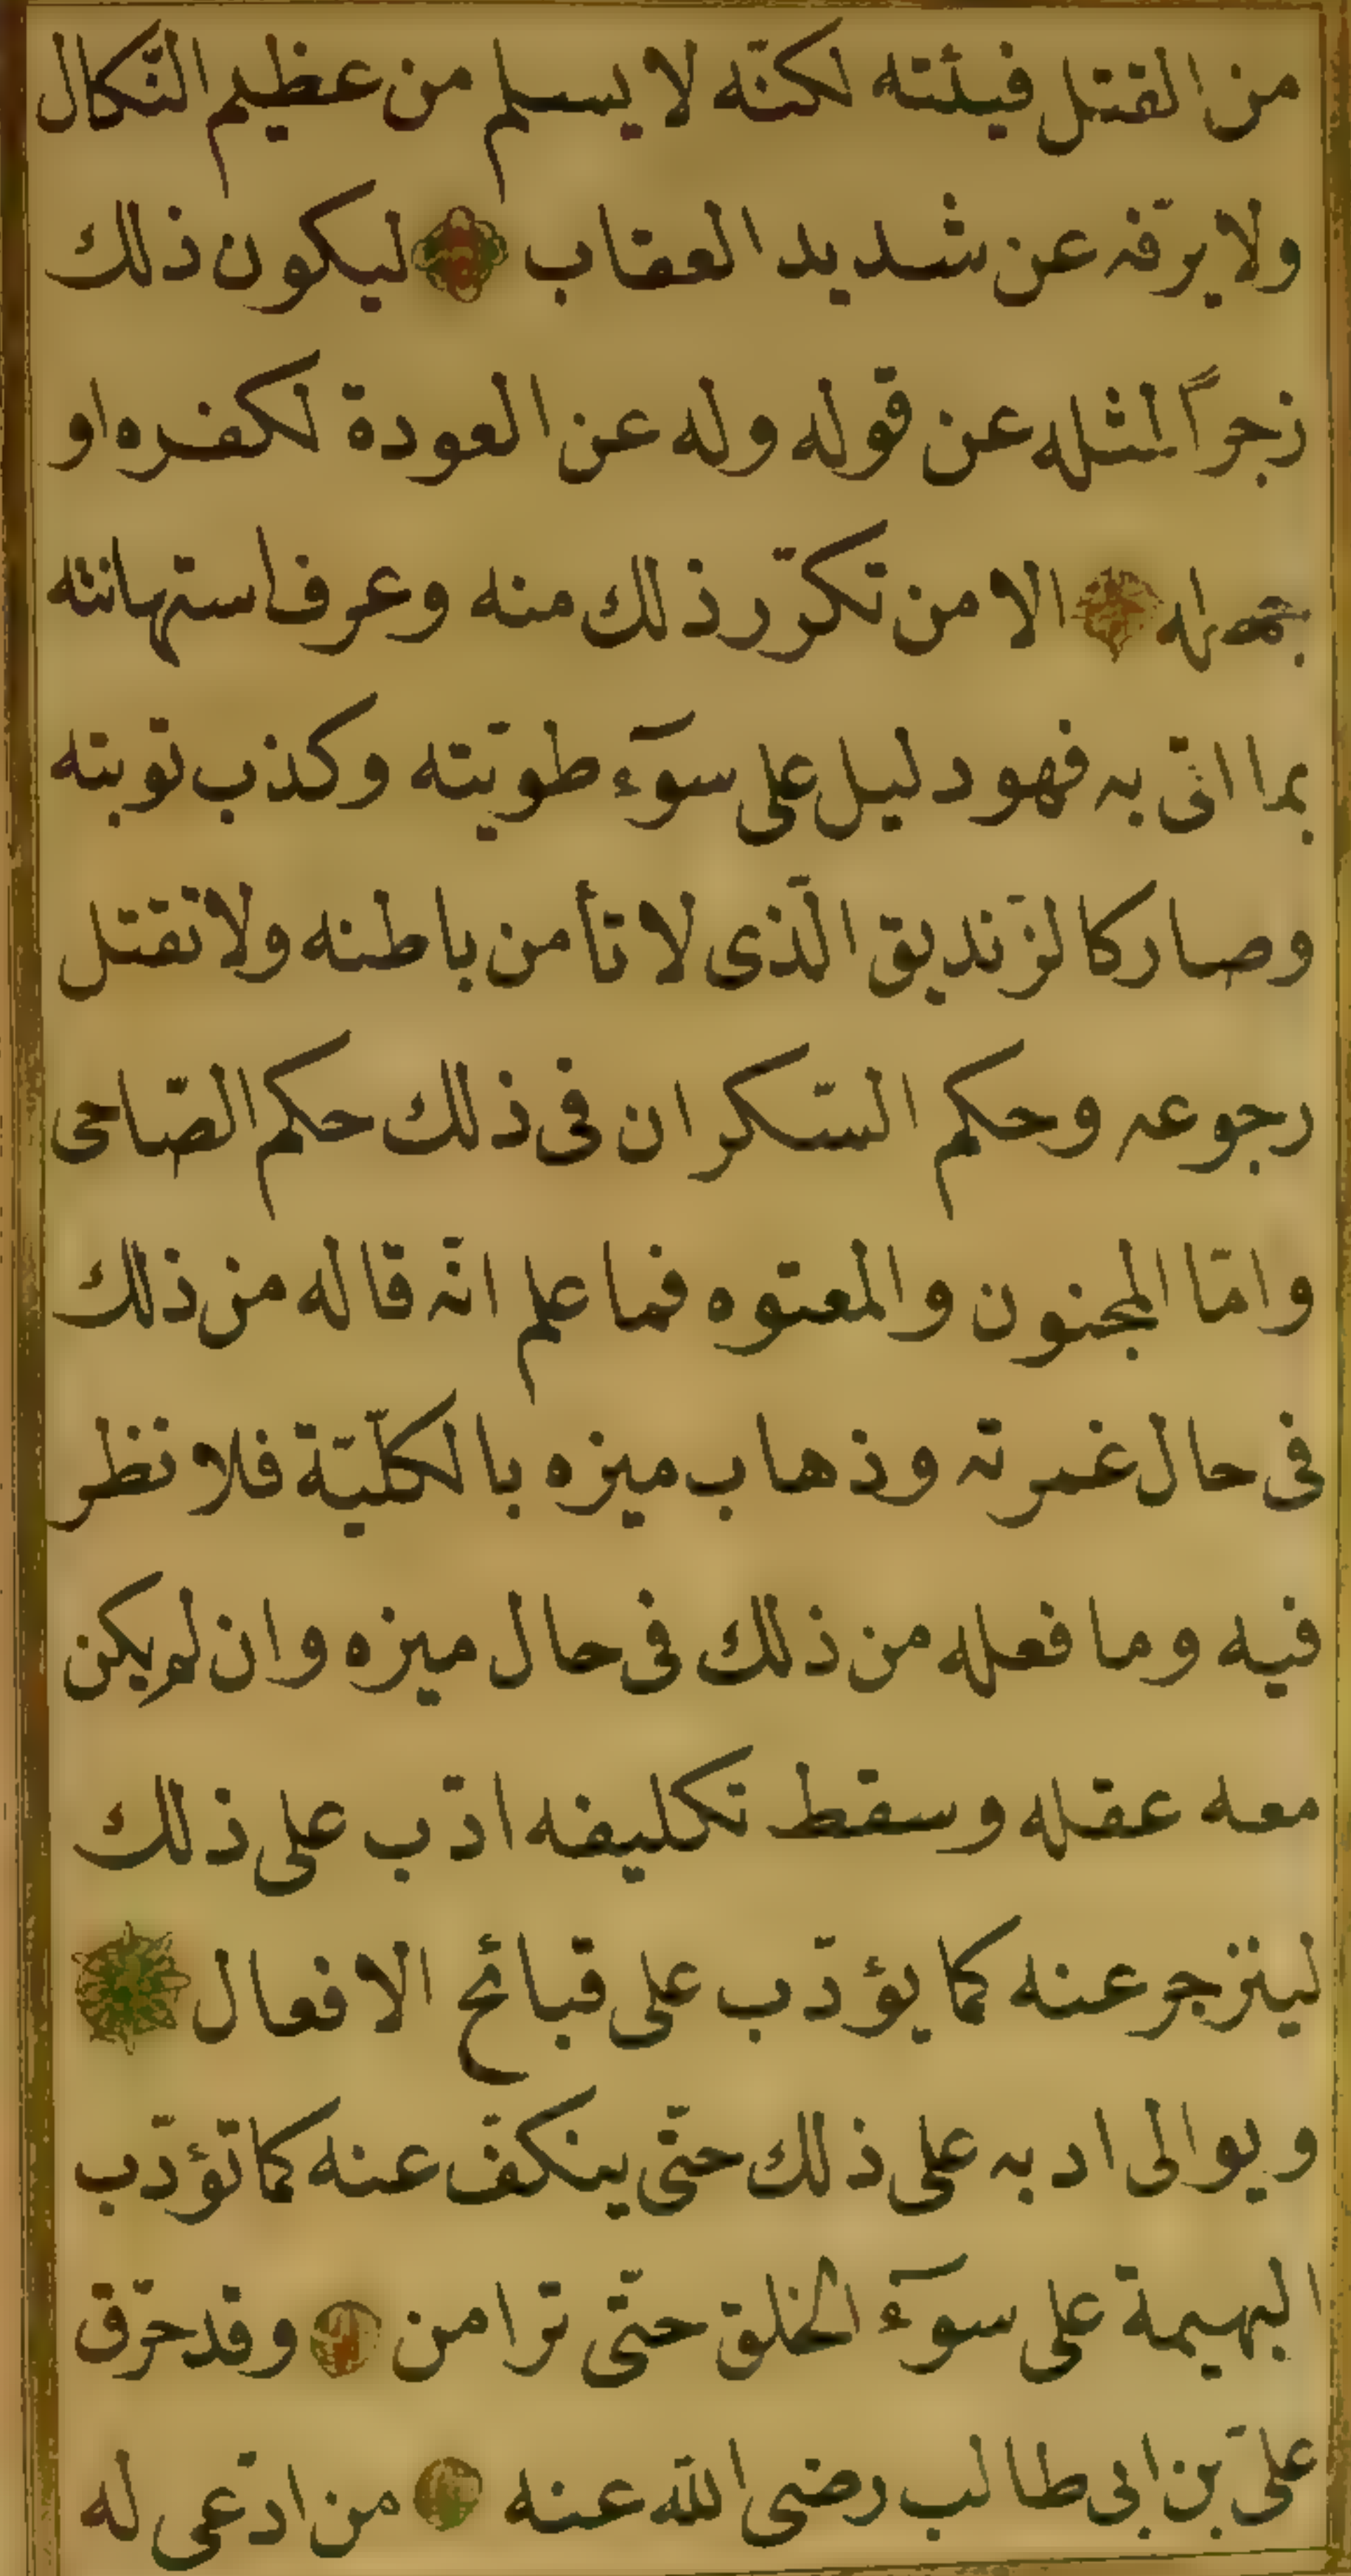 من القتل فيئته لكنّه لا يسلم من عظيم النّكال
ولا يرفّه عن شديد العقاب ليكون ذلك
زجراً لمثله عن قوله وله عن العودة لكفره او
بجهله الا من تكرّر ذلك منه وعرف استهانته
بما اتى به فهو دليل على سوٓء طويّته وكذب توبته
وصار كالزّنديق الّذى لا تأمن باطنه ولا تقتل
رجوعه وحكم السّكران فى ذلك حكم الصّاحى
وامّا المجنون والمعتوه فما علم انّه قاله من ذلك
فى حال غمرته وذهاب ميزه بالكلّيّة فلا نظر
فيه وما فعله من ذلك فى حال ميزه وان لم يكن
معه عقله وسقط تكليفه ادّب على ذلك
لينزجر عنه كما يؤدّب على قبائح الافعال
ويوالى ادبه على ذلك حتّى ينكفّ عنه كما تؤدّب
البهيمة على سوٓء الخلق حتّى تراض وقد حرّق
علىّ بن ابى طالب رضى الله عنه من ادّعى له